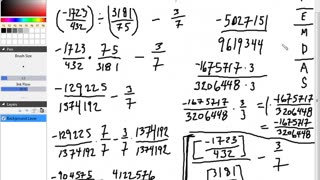 Brush Size
Ink Flow
Background Layer
(-1723/432) ÷ (3181/75) - 3/7
-1723/432 · 75/3181 - 3/7
-129225/1374192 - 3/7
-129225/1374192 · 7/7 - 3/7 · 1374192/1374192
-904575 4122576
-5027151/9619344
-1675717·3/3206448·3
-1675717/3206448 · 3/3 = 1· -1675717/3206448
-1675717/3206448
[-1723/432]/[3181] - 3/7
E
M
D
A
S